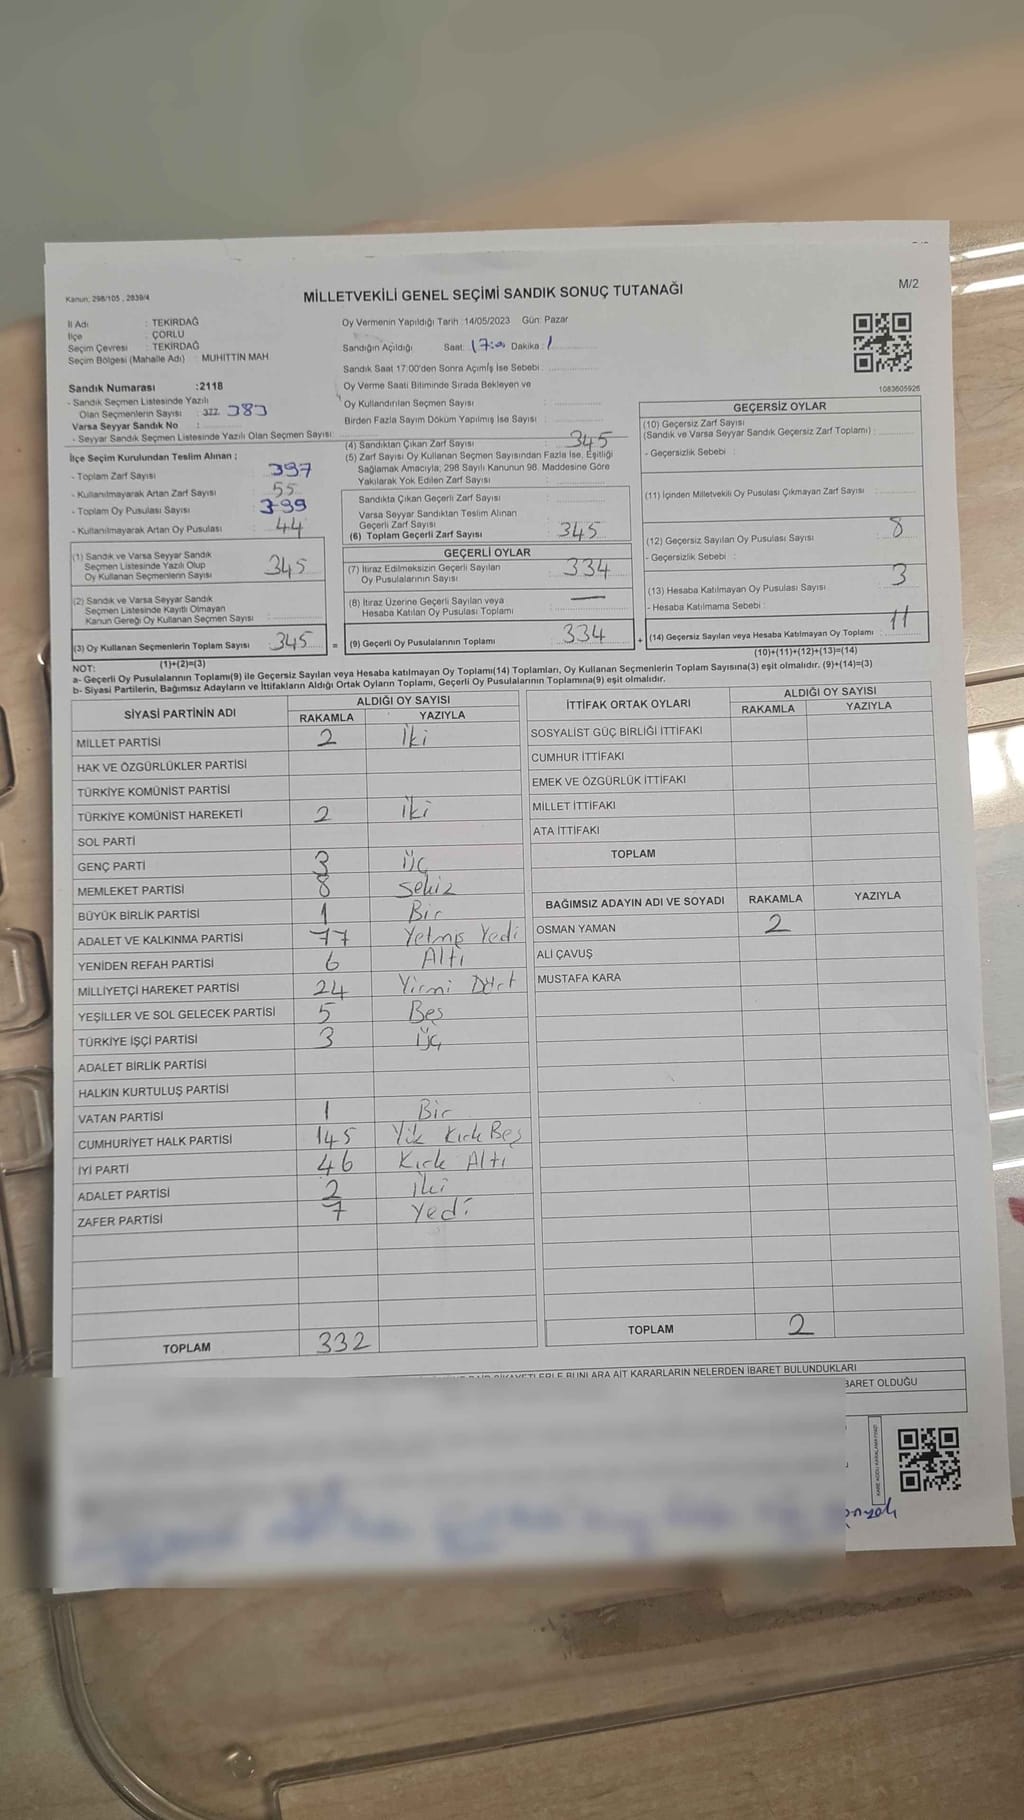 Kanun; 298/105 , 2839/4
MİLLETVEKİLİ GENEL SEÇİMİ SANDIK SONUÇ TUTANAĞI
M/2
İl Adı : TEKİRDAĞ
İlçe : ÇORLU
Seçim Çevresi : TEKİRDAĞ
Seçim Bölgesi (Mahalle Adı) : MUHİTTİN MAH
Oy Vermenin Yapıldığı Tarih :14/05/2023 Gün: Pazar
Sandığın Açıldığı Saat: Dakika :
Sandık Saat 17:00'den Sonra Açımlş İse Sebebi :
Oy Verme Saati Bitiminde Sırada Bekleyen ve
Oy Kullandırılan Seçmen Sayısı :
Birden Fazla Sayım Döküm Yapılmış İse Sayısı :
1083605926
Sandık Numarası :2118
- Sandık Seçmen Listesinde Yazılı
Olan Seçmenlerin Sayısı : 377 383
Varsa Seyyar Sandık No :
- Seyyar Sandık Seçmen Listesinde Yazılı Olan Seçmen Sayısı:
İlçe Seçim Kurulundan Teslim Alınan ;
- Toplam Zarf Sayısı : 397
- Kullanılmayarak Artan Zarf Sayısı : 55
- Toplam Oy Pusulası Sayısı : 399
- Kullanılmayarak Artan Oy Pusulası : 44
(1) Sandık ve Varsa Seyyar Sandık
Seçmen Listesinde Yazılı Olup
Oy Kullanan Seçmenlerin Sayısı : 345
(2) Sandık ve Varsa Seyyar Sandık
Seçmen Listesinde Kayıtlı Olmayan
Kanun Gereği Oy Kullanan Seçmen Sayısı :
(3) Oy Kullanan Seçmenlerin Toplam Sayısı : 345 =
(1)+(2)=(3)
(4) Sandıktan Çıkan Zarf Sayısı : 345
(5) Zarf Sayısı Oy Kullanan Seçmen Sayısından Fazla İse, Eşitliği
Sağlamak Amacıyla; 298 Sayılı Kanunun 98. Maddesine Göre
Yakılarak Yok Edilen Zarf Sayısı :
Sandıkta Çıkan Geçerli Zarf Sayısı :
Varsa Seyyar Sandıktan Teslim Alınan
Geçerli Zarf Sayısı :
(6) Toplam Geçerli Zarf Sayısı : 345
GEÇERLİ OYLAR
(7) İtiraz Edilmeksizin Geçerli Sayılan
Oy Pusulalarının Sayısı : 334
(8) İtiraz Üzerine Geçerli Sayılan veya
Hesaba Katılan Oy Pusulası Toplamı : —
(9) Geçerli Oy Pusulalarının Toplamı : 334 +
GEÇERSİZ OYLAR
(10) Geçersiz Zarf Sayısı
(Sandık ve Varsa Seyyar Sandık Geçersiz Zarf Toplamı) :
- Geçersizlik Sebebi :
(11) İçinden Milletvekili Oy Pusulası Çıkmayan Zarf Sayısı :
(12) Geçersiz Sayılan Oy Pusulası Sayısı : 8
- Geçersizlik Sebebi :
(13) Hesaba Katılmayan Oy Pusulası Sayısı : 3
- Hesaba Katılmama Sebebi :
(14) Geçersiz Sayılan veya Hesaba Katılmayan Oy Toplamı : 11
(10)+(11)+(12)+(13)=(14)
NOT:
a- Geçerli Oy Pusulalarının Toplamı(9) ile Geçersiz Sayılan veya Hesaba katılmayan Oy Toplamı(14) Toplamları, Oy Kullanan Seçmenlerin Toplam Sayısına(3) eşit olmalıdır. (9)+(14)=(3)
b- Siyasi Partilerin, Bağımsız Adayların ve İttifakların Aldığı Ortak Oyların Toplamı, Geçerli Oy Pusulalarının Toplamına(9) eşit olmalıdır.
SİYASİ PARTİNİN ADI ALDIĞI OY SAYISI
RAKAMLA YAZIYLA
MİLLET PARTİSİ 2 İki
HAK VE ÖZGÜRLÜKLER PARTİSİ
TÜRKİYE KOMÜNİST PARTİSİ
TÜRKİYE KOMÜNİST HAREKETİ 2 İki
SOL PARTİ
GENÇ PARTİ 3 Üç
MEMLEKET PARTİSİ 8 Sekiz
BÜYÜK BİRLİK PARTİSİ 1 Bir
ADALET VE KALKINMA PARTİSİ 77 Yetmiş Yedi
YENİDEN REFAH PARTİSİ 6 Altı
MİLLİYETÇİ HAREKET PARTİSİ 24 Yirmi Dört
YEŞİLLER VE SOL GELECEK PARTİSİ 5 Beş
TÜRKİYE İŞÇİ PARTİSİ 3 Üç
ADALET BİRLİK PARTİSİ
HALKIN KURTULUŞ PARTİSİ
VATAN PARTİSİ 1 Bir
CUMHURİYET HALK PARTİSİ 145 Yük Kırk Beş
İYİ PARTİ 46 Kırk Altı
ADALET PARTİSİ 2 İki
ZAFER PARTİSİ 7 Yedi
TOPLAM 332
İTTİFAK ORTAK OYLARI ALDIĞI OY SAYISI
RAKAMLA YAZIYLA
SOSYALİST GÜÇ BİRLİĞİ İTTİFAKI
CUMHUR İTTİFAKI
EMEK VE ÖZGÜRLÜK İTTİFAKI
MİLLET İTTİFAKI
ATA İTTİFAKI
TOPLAM
BAĞIMSIZ ADAYIN ADI VE SOYADI RAKAMLA YAZIYLA
OSMAN YAMAN 2
ALİ ÇAVUŞ
MUSTAFA KARA
TOPLAM 2
BUNLARA AİT KARARLARIN NELERDEN İBARET BULUNDUKLARI
BARET OLDUĞU